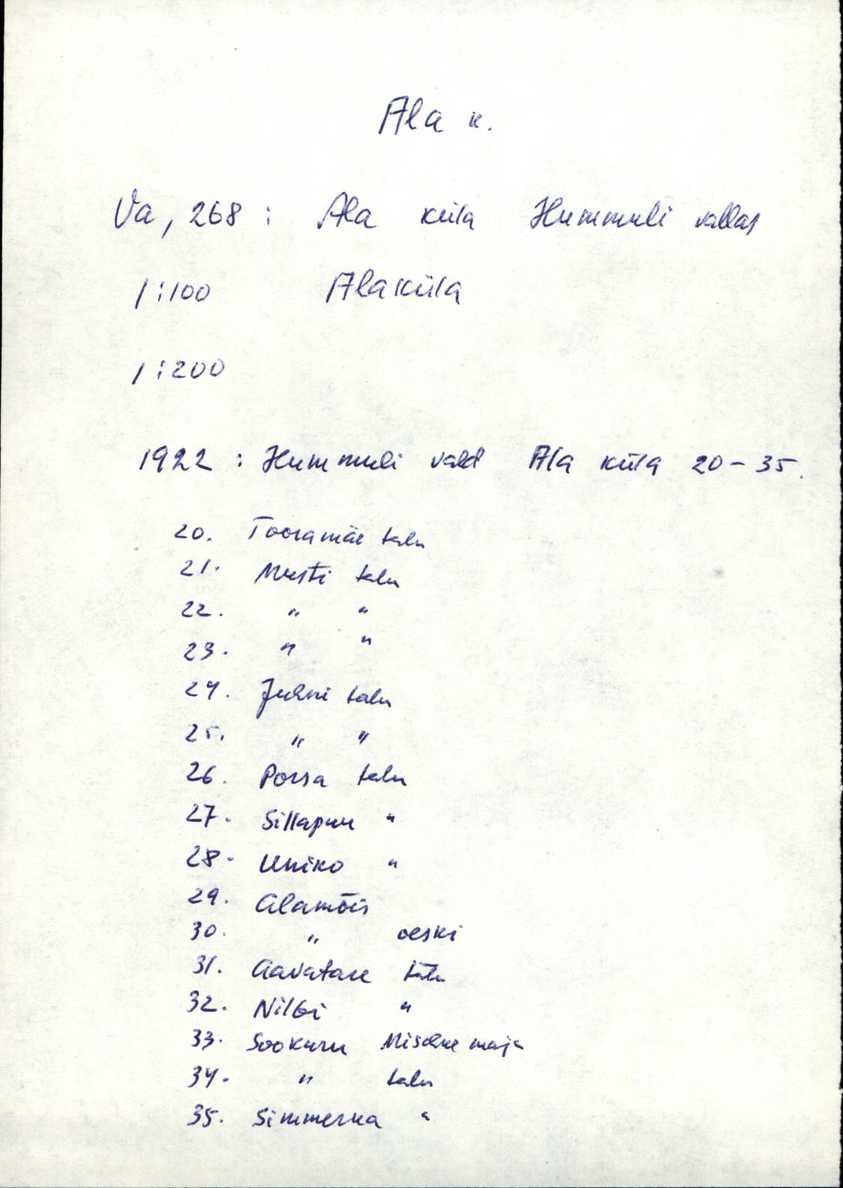 Ala k.
Va, 268 : Ala küla Hummuli vallas
1:100 Alaküla
1:200
1922 : Hummuli vald Ala küla 20-35.
20. Tooramäe talu
21. Musti talu
22. " "
23. " "
24. Juhni talu
25. " "
26. Porsa talu
27. Sillapuu "
28. Uniko "
29. Alamõis
30. " veski
31. Aavatare talu
32. Nilbi "
33. Sookuru maja
34. " talu
35. Simmerna "